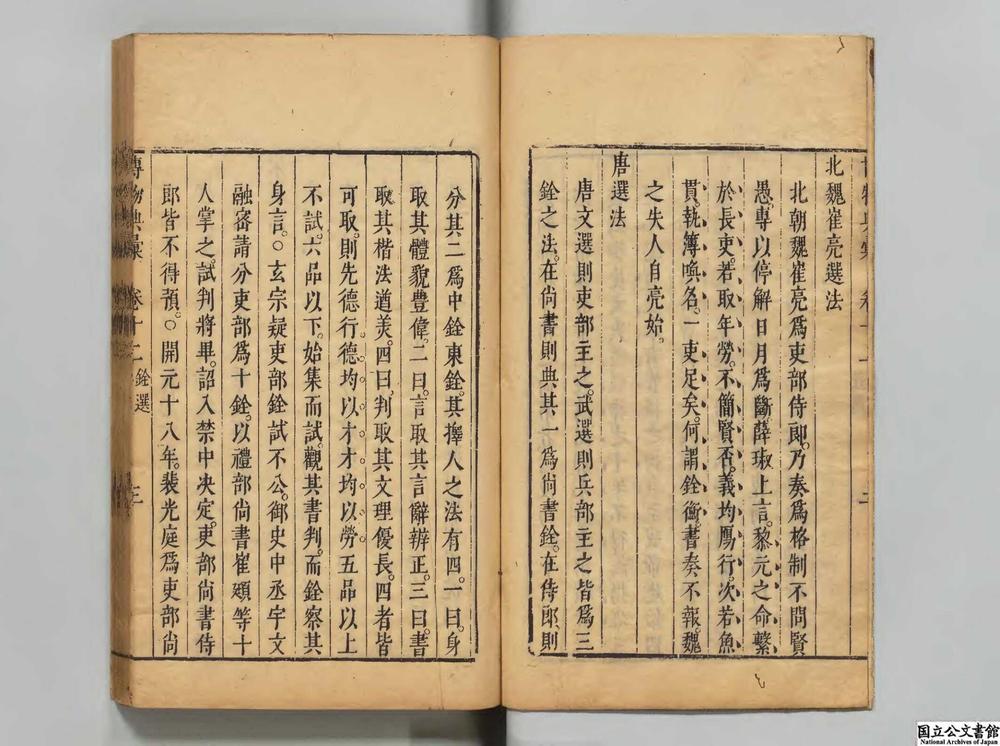 北魏崔亮選法
北朝魏崔亮爲吏部侍郎。乃奏爲格制不問賢
愚。專以停解日月爲斷薛琡上言。黎元之命繫
於長吏。若取年勞。不簡賢否。義均鴈行。次若魚
貫。執簿喚名。一吏足矣。何謂銓衡。書奏不報魏
之失人自亮始。
唐選法
唐文選則吏部主之。武選則兵部主之皆爲三
銓之法。在尚書則典其一爲尚書銓。在侍郎則
分其二爲中銓東銓。其擇人之法有四。一曰。身
取其體貌豊偉。二曰。言取其言辭辨正。三曰。書
取其楷法遒美。四曰。判取其文理優長。四者皆
可取。則先德行。德均以才。才均以勞。五品以上
不試。六品以下。始集而試。觀其書判。而銓察其
身言。○玄宗疑吏部銓試不公。御史中丞宇文
融密請分吏部爲十銓。以禮部尚書崔頲等十
人掌之。試判將畢。詔入禁中决定。吏部尚書侍
郎皆不得預。○開元十八年。裴光庭爲吏部尚
博物典彙 卷十二 銓選 三
国立公文書館
National Archives of Japan